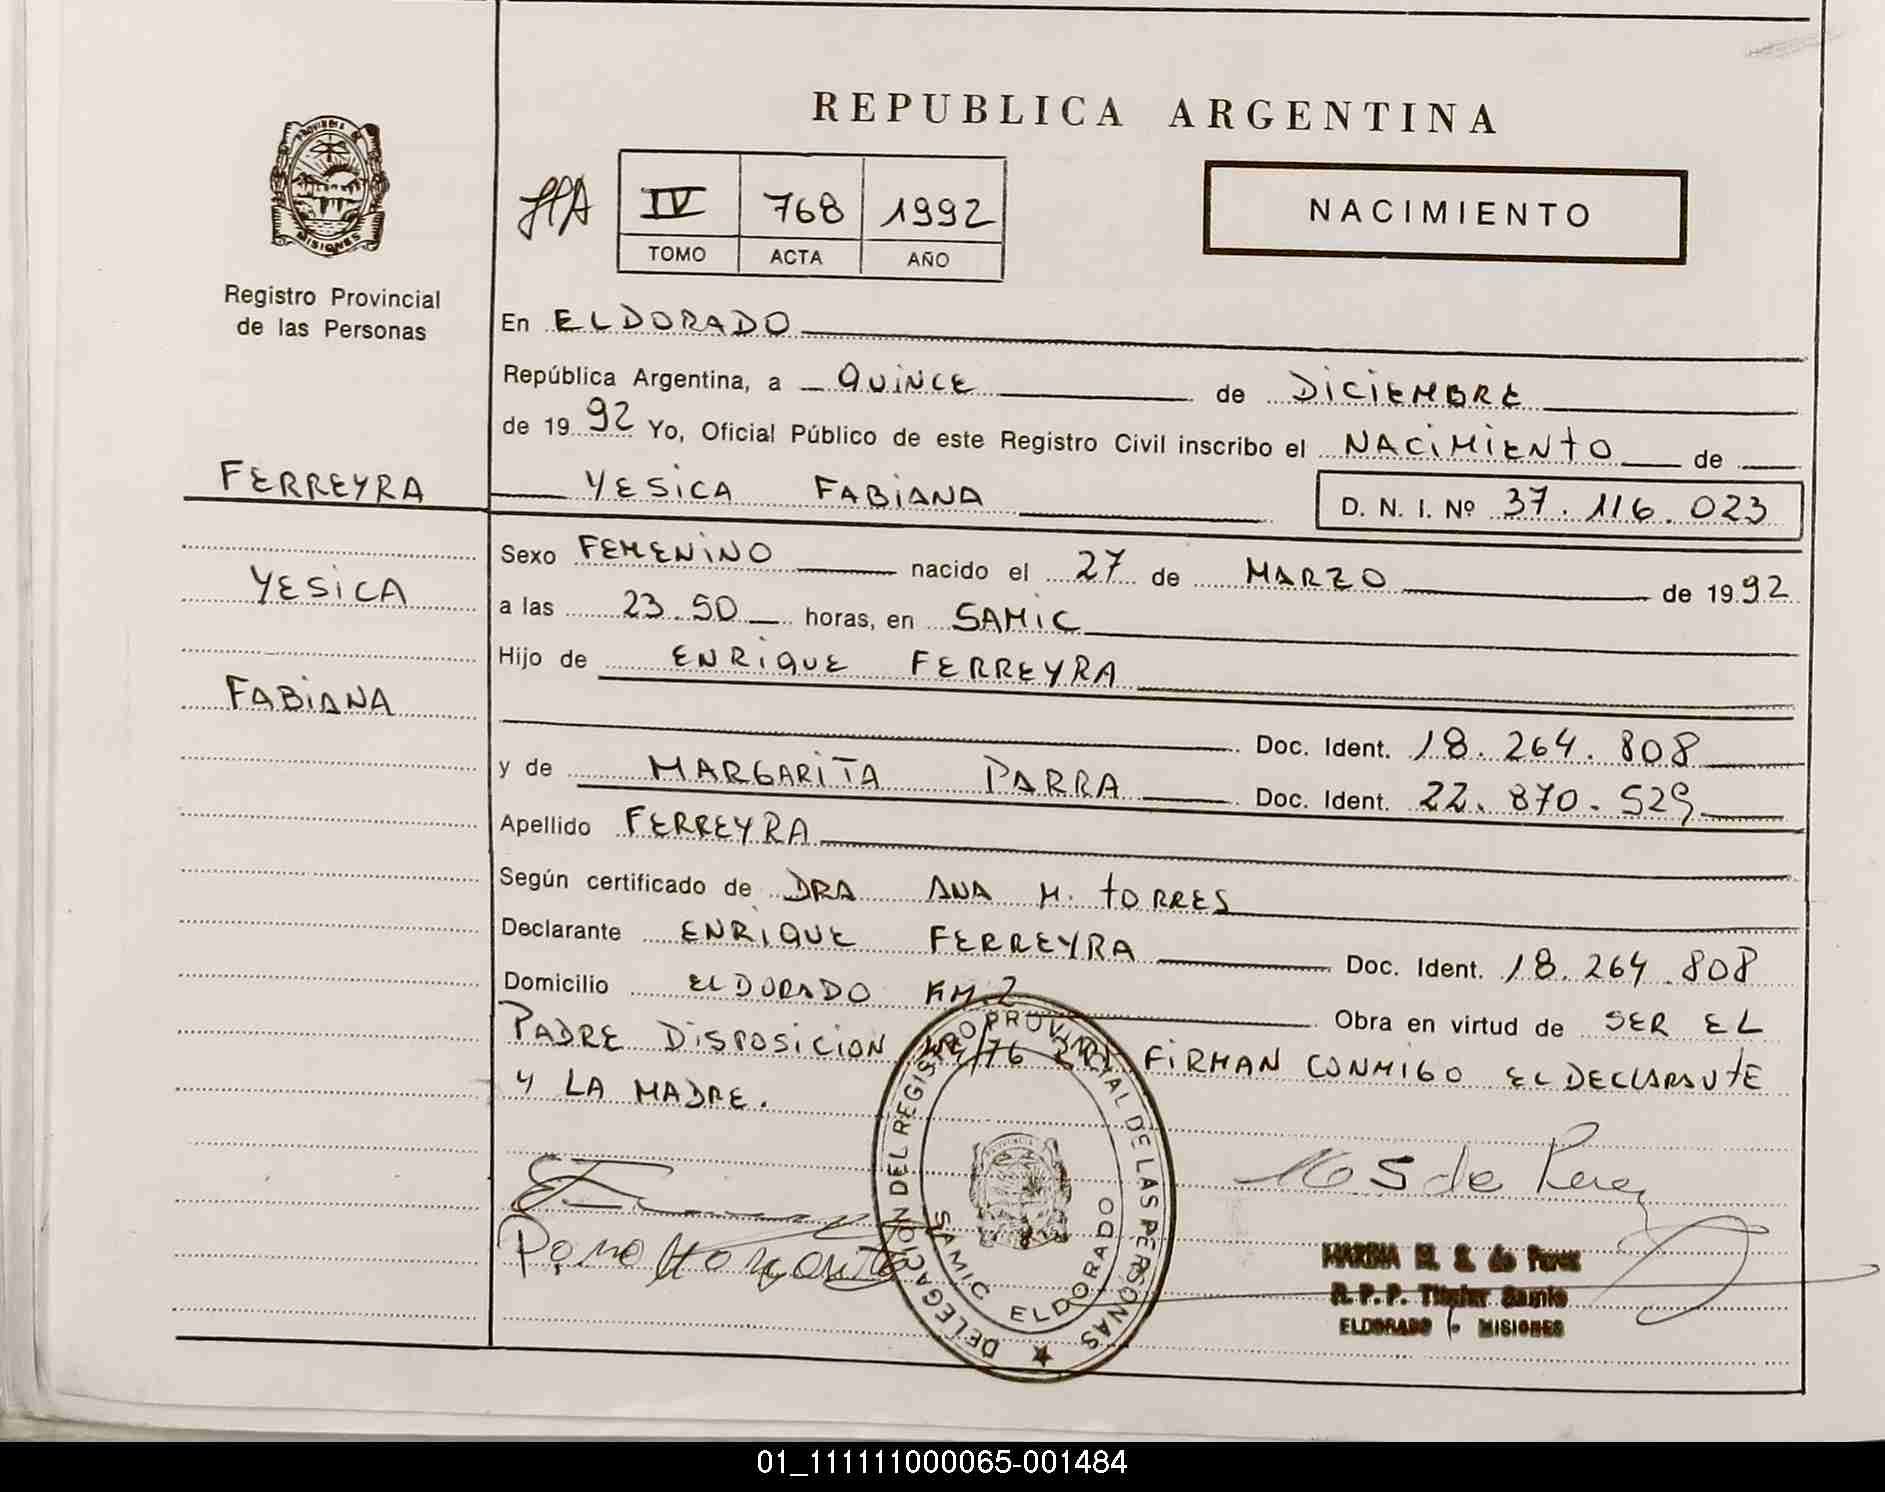 REPUBLICA ARGENTINA
PROVINCIA DE MISIONES
Registro Provincial
de las Personas
IV 768 1992
TOMO ACTA AÑO
NACIMIENTO
En ELDORADO
República Argentina, a QUINCE de DICIEMBRE
de 1992 Yo, Oficial Público de este Registro Civil inscribo el NACIMIENTO de
FERREYRA
YESICA FABIANA D. N. I. Nº 37.116.023
Sexo FEMENINO nacido el 27 de MARZO de 1992
YESICA
a las 23.50 horas, en SAMIC
Hijo de ENRIQUE FERREYRA
FABIANA
Doc. Ident. 18.264.808
y de MARGARITA PARRA Doc. Ident. 22.870.529
Apellido FERREYRA
Según certificado de DRA ANA M. TORRES
Declarante ENRIQUE FERREYRA Doc. Ident. 18.264.808
Domicilio ELDORADO KM.2 Obra en virtud de SER EL
PADRE DISPOSICION /76 FIRMAN CONMIGO EL DECLARANTE
Y LA MADRE.
DELEGACION DEL REGISTRO PROVINCIAL DE LAS PERSONAS
SAMIC ELDORADO
S de Perez
Parra Margarita
MARINA M. S. de Perez
R.P.P. Titular Samic
ELDORADO - MISIONES
01_111111000065-001484